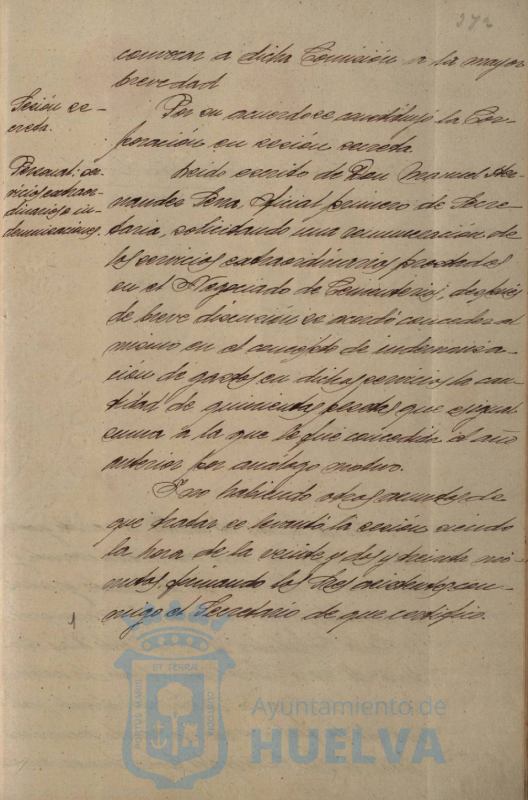 372
convocar a dicha Comisión a la mayor
brevedad
Sesión se-
creta.
Por su acuerdo se constituyó la Cor-
poración en sesión secreta.
Personal: ser-
vicios extraor-
dinarios e in-
demnizaciones.
Leido escrito de Don Manuel Her-
nandez Pena, Oficial primero de Secre-
taria, solicitando una remuneración de
los servicios extraordinarios prestados
en el Negociado de Cementerios, después
de breve discusión se acordó conceder al
mismo en el concepto de indemniza-
ción de gastos en dichos servicios la can-
tidad de quinientas pesetas que es igual
suma a la que le fue concedida el año
anterior por análogo motivo.
Y no habiendo otros asuntos de
que tratar se levantó la sesión siendo
la hora de la veinte y dos y treinta mi-
nutos, firmando los Sres asistentes con-
migo el Secretario de que certifico.
PORTUS MARIS ET TERRAE CUSTODIA
Ayuntamiento de
HUELVA